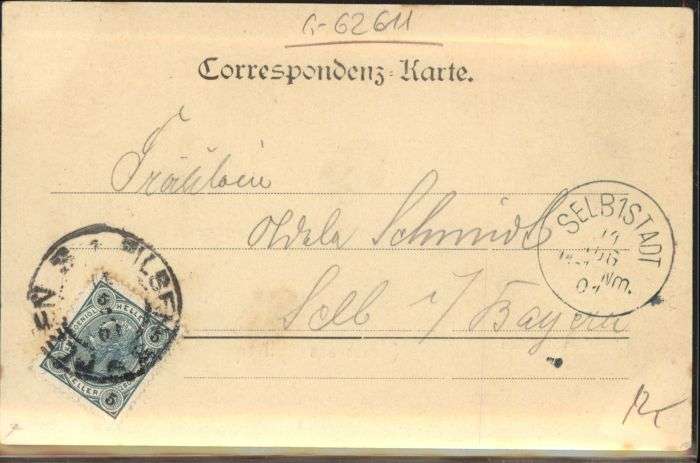 G-62611
Correspondenz-Karte.
Fräulein
Adela Schmidt
Selb i/ Bayern
SELB1STADT
Nm.
5
HELLER
5